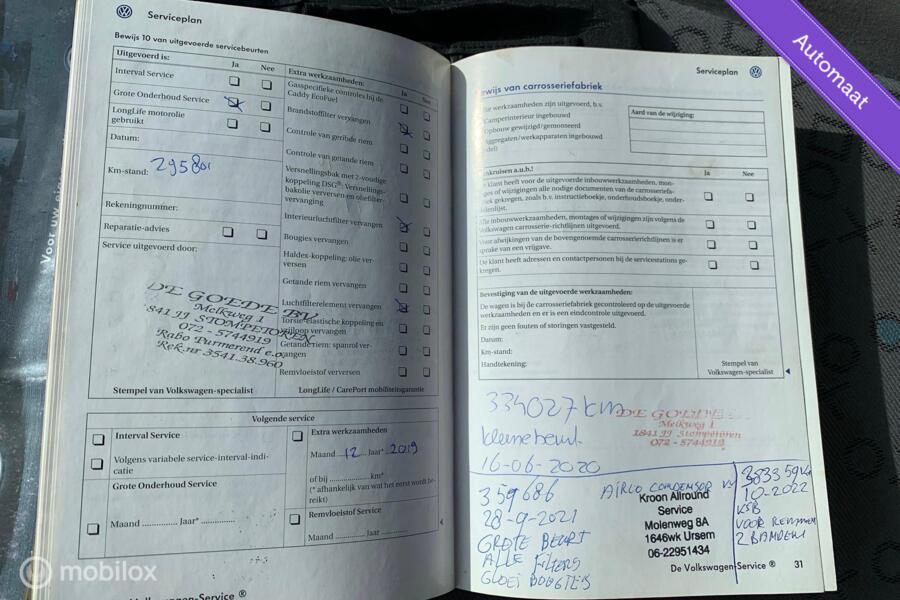 Serviceplan
Bewijs 10 van uitgevoerde servicebeurten
Uitgevoerd is:
Ja
Nee
Interval Service
Grote Onderhoud Service
LongLife motorolie
gebruikt
Datum:
Km-stand: 295801
Rekeningnummer:
Reparatie-advies
Service uitgevoerd door:
DE GOEDE BV
Melkweg 1
1841 JJ STOMPETOREN
072 - 5744919
Rabo Purmerend e.o.
Rek.nr 3541.38.960
Stempel van Volkswagen-specialist
Extra werkzaamheden:
Ja
Nee
Gasspecifieke controles bij de
Caddy EcoFuel
Brandstoffilter vervangen
Controle van geribde riem
Controle van getande riem
Versnellingsbak met 2-voudige
koppeling DSG®: Versnellings-
bakolie verversen en oliefilter-
vervanging
Interieurluchtfilter vervangen
Bougies vervangen
Haldex-koppeling: olie ver-
versen
Getande riem vervangen
Luchtfilterelement vervangen
Torsie-elastische koppeling en
vrijloop vervangen
Getande riem: spanrol ver-
vangen
Remvloeistof verversen
LongLife / CarePort mobiliteitsgarantie
Volgende service
Interval Service
Volgens variabele service-interval-indi-
catie
Grote Onderhoud Service
Maand .............. Jaar* ..............
Extra werkzaamheden
Maand 12 Jaar* 2019
of bij .................... km*
(* afhankelijk van wat het eerst wordt be-
reikt)
Remvloeistof Service
Maand .............. Jaar* ..............
Volkswagen-Service ®
Serviceplan
Bewijs van carrosseriefabriek
werkzaamheden zijn uitgevoerd, b.v.
Camperinterieur ingebouwd
Opbouw gewijzigd/gemonteerd
Aggregaten/werkapparaten ingebouwd
Aard van de wijziging:
Aankruisen a.u.b.!
Ja
Nee
klant heeft voor de uitgevoerde inbouwwerkzaamheden, mon-
tages of wijzigingen alle nodige documenten van de carrosseriefa-
briek gekregen, zoals b.v. instructieboekje, onderhoudsboekje, onder-
delenlijst.
Alle inbouwwerkzaamheden, montages of wijzigingen zijn volgens de
Volkswagen carrosserie-richtlijnen uitgevoerd.
Voor afwijkingen van de bovengenoemde carrosserierichtlijnen is er
sprake van een vrijgave.
De klant heeft adressen en contactpersonen bij de servicestations ge-
kregen.
Bevestiging van de uitgevoerde werkzaamheden:
De wagen is bij de carrosseriefabriek gecontroleerd op de uitgevoerde
werkzaamheden en er is een eindcontrole uitgevoerd.
Er zijn geen fouten of storingen vastgesteld.
Datum:
Km-stand:
Handtekening:
Stempel van
Volkswagen-specialist
334027 km
kleine beurt
16-06-2020
DE GOEDE
Melkweg 1
1841 JJ Stompetoren
072 - 5744919
359686
28-9-2021
GROTE BEURT
ALLE FILTERS
GLOEI BOUGIES
AIRCO CONDENSOR
Kroon Allround
Service
Molenweg 8A
1646wk Ursem
06-22951434
383359 KM
10-2022
KGB
VOOR REMMEN
2 BANDEN
De Volkswagen-Service ®
31
Automaat
Voor uw
mobilox